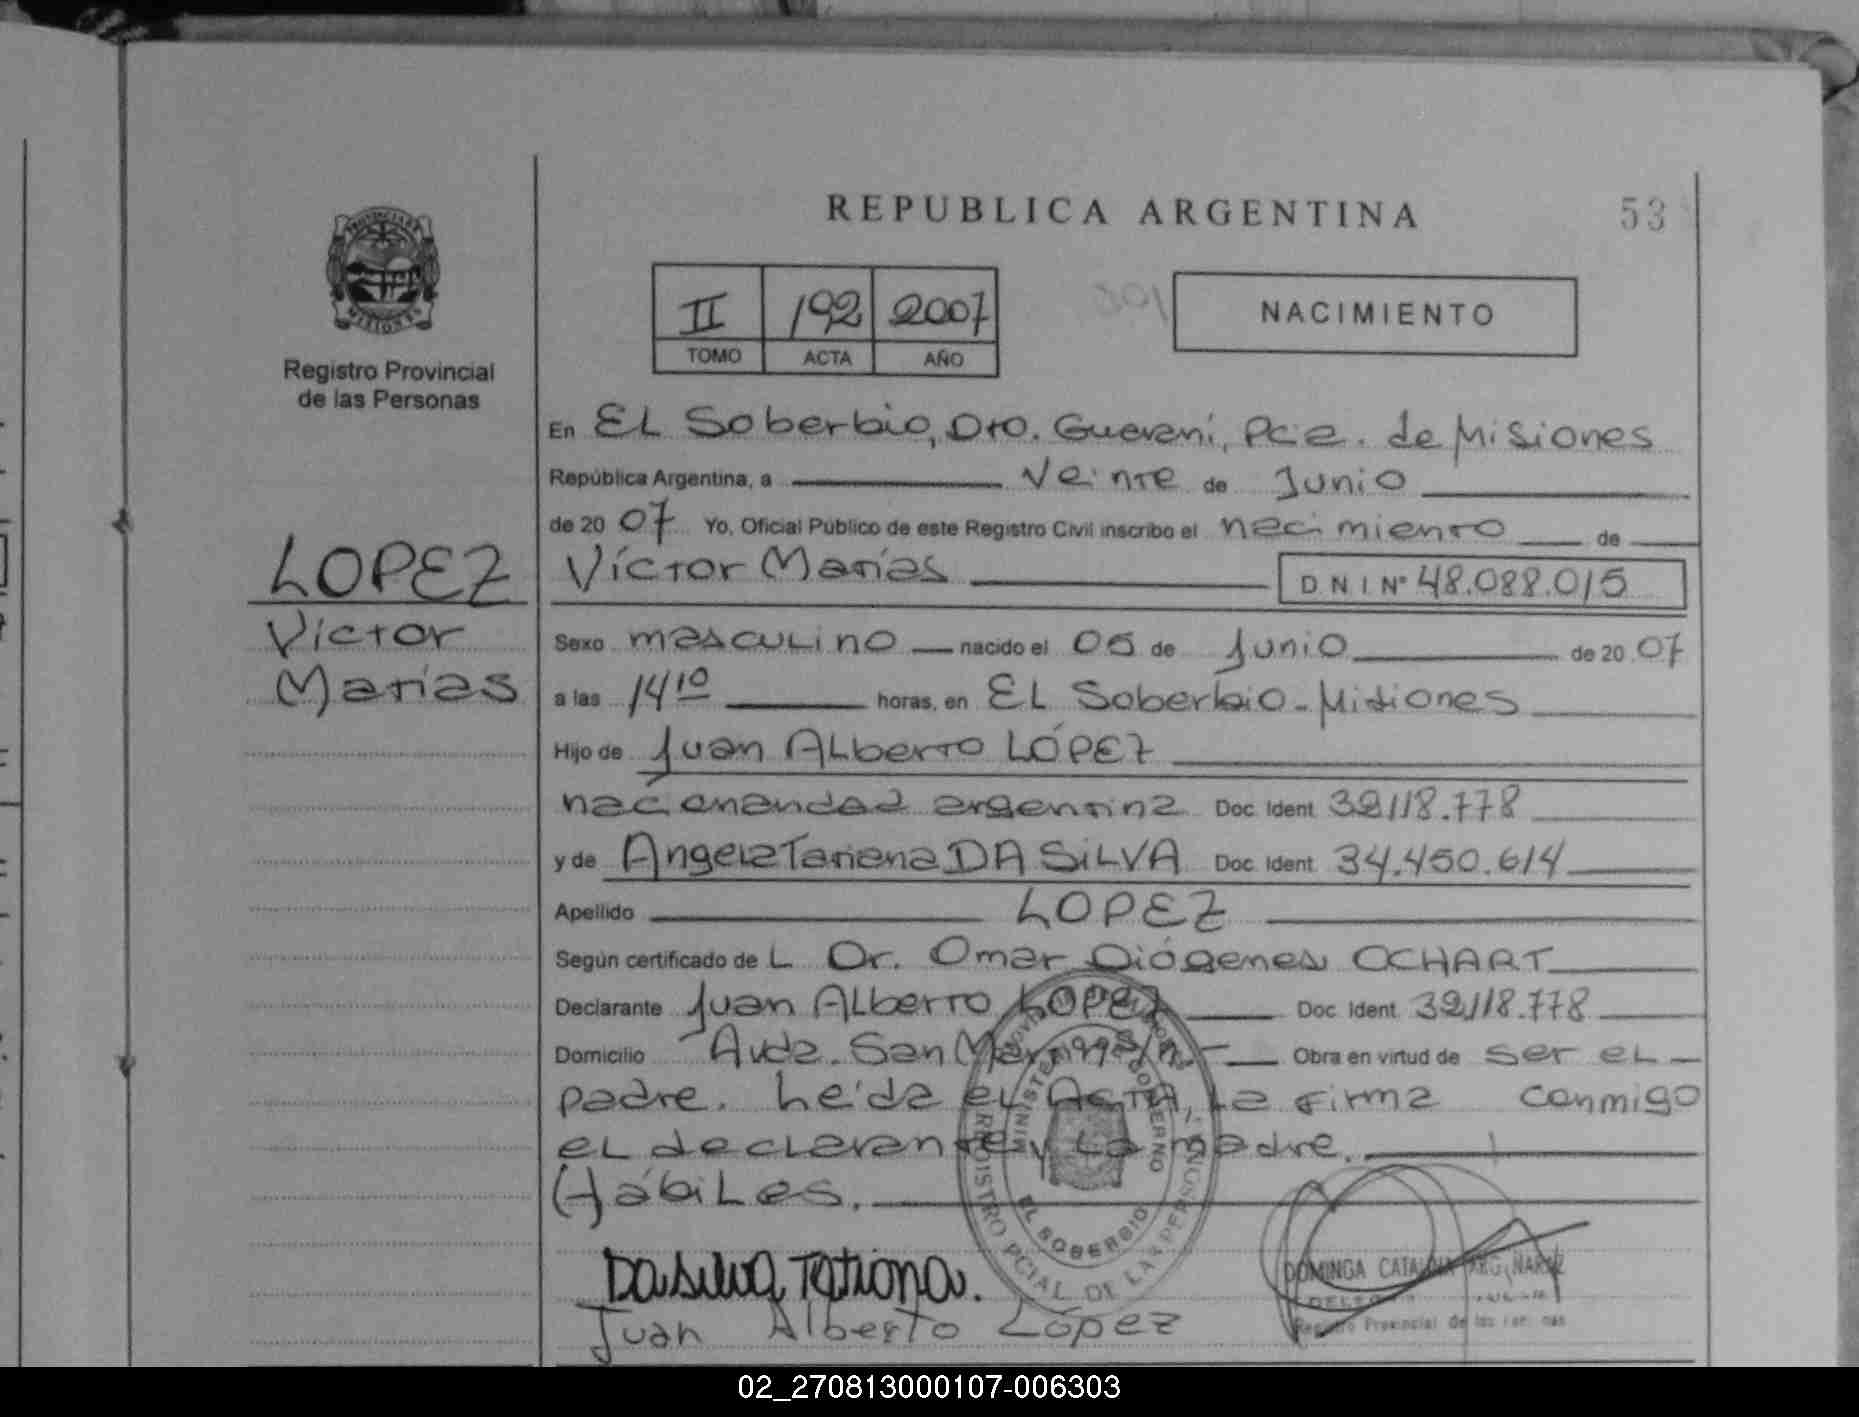 REPUBLICA ARGENTINA
53
PROVINCIA DE
MISIONES
Registro Provincial
de las Personas
II 192 2007
TOMO ACTA AÑO
NACIMIENTO
En EL Soberbio, Dto. Guaraní, Pcia. de Misiones
República Argentina, a Veinte de Junio
de 20 07 Yo, Oficial Público de este Registro Civil inscribo el nacimiento de
LOPEZ
Víctor Matías
Víctor Matías D N I Nº 48.088.015
Sexo masculino nacido el 05 de Junio de 20 07
a las 14 10 horas, en EL Soberbio - Misiones
Hijo de Juan ALberto LÓPEZ
nacionalidad argentina Doc. Ident. 32.118.778
y de Angela Tatiana DA SiLVA Doc. Ident. 34.450.614
Apellido LOPEZ
Según certificado de L Dr. Omar Diógenes OCHART
Declarante Juan ALberto LOPEZ Doc. Ident. 32.118.778
Domicilio Avda. San Martín s/nº Obra en virtud de ser eL
padre. Leída eL Acta, La firma conmigo
eL declarante y La madre.
HábiLes.
MINISTERIO DE GOBIERNO
REGISTRO PCIAL DE LAS PERSONAS
EL SOBERBIO
Da Silva Tatiana.
Juan Alberto López
DOMINGA CATALINA
Registro Provincial de las Personas
02_270813000107-006303